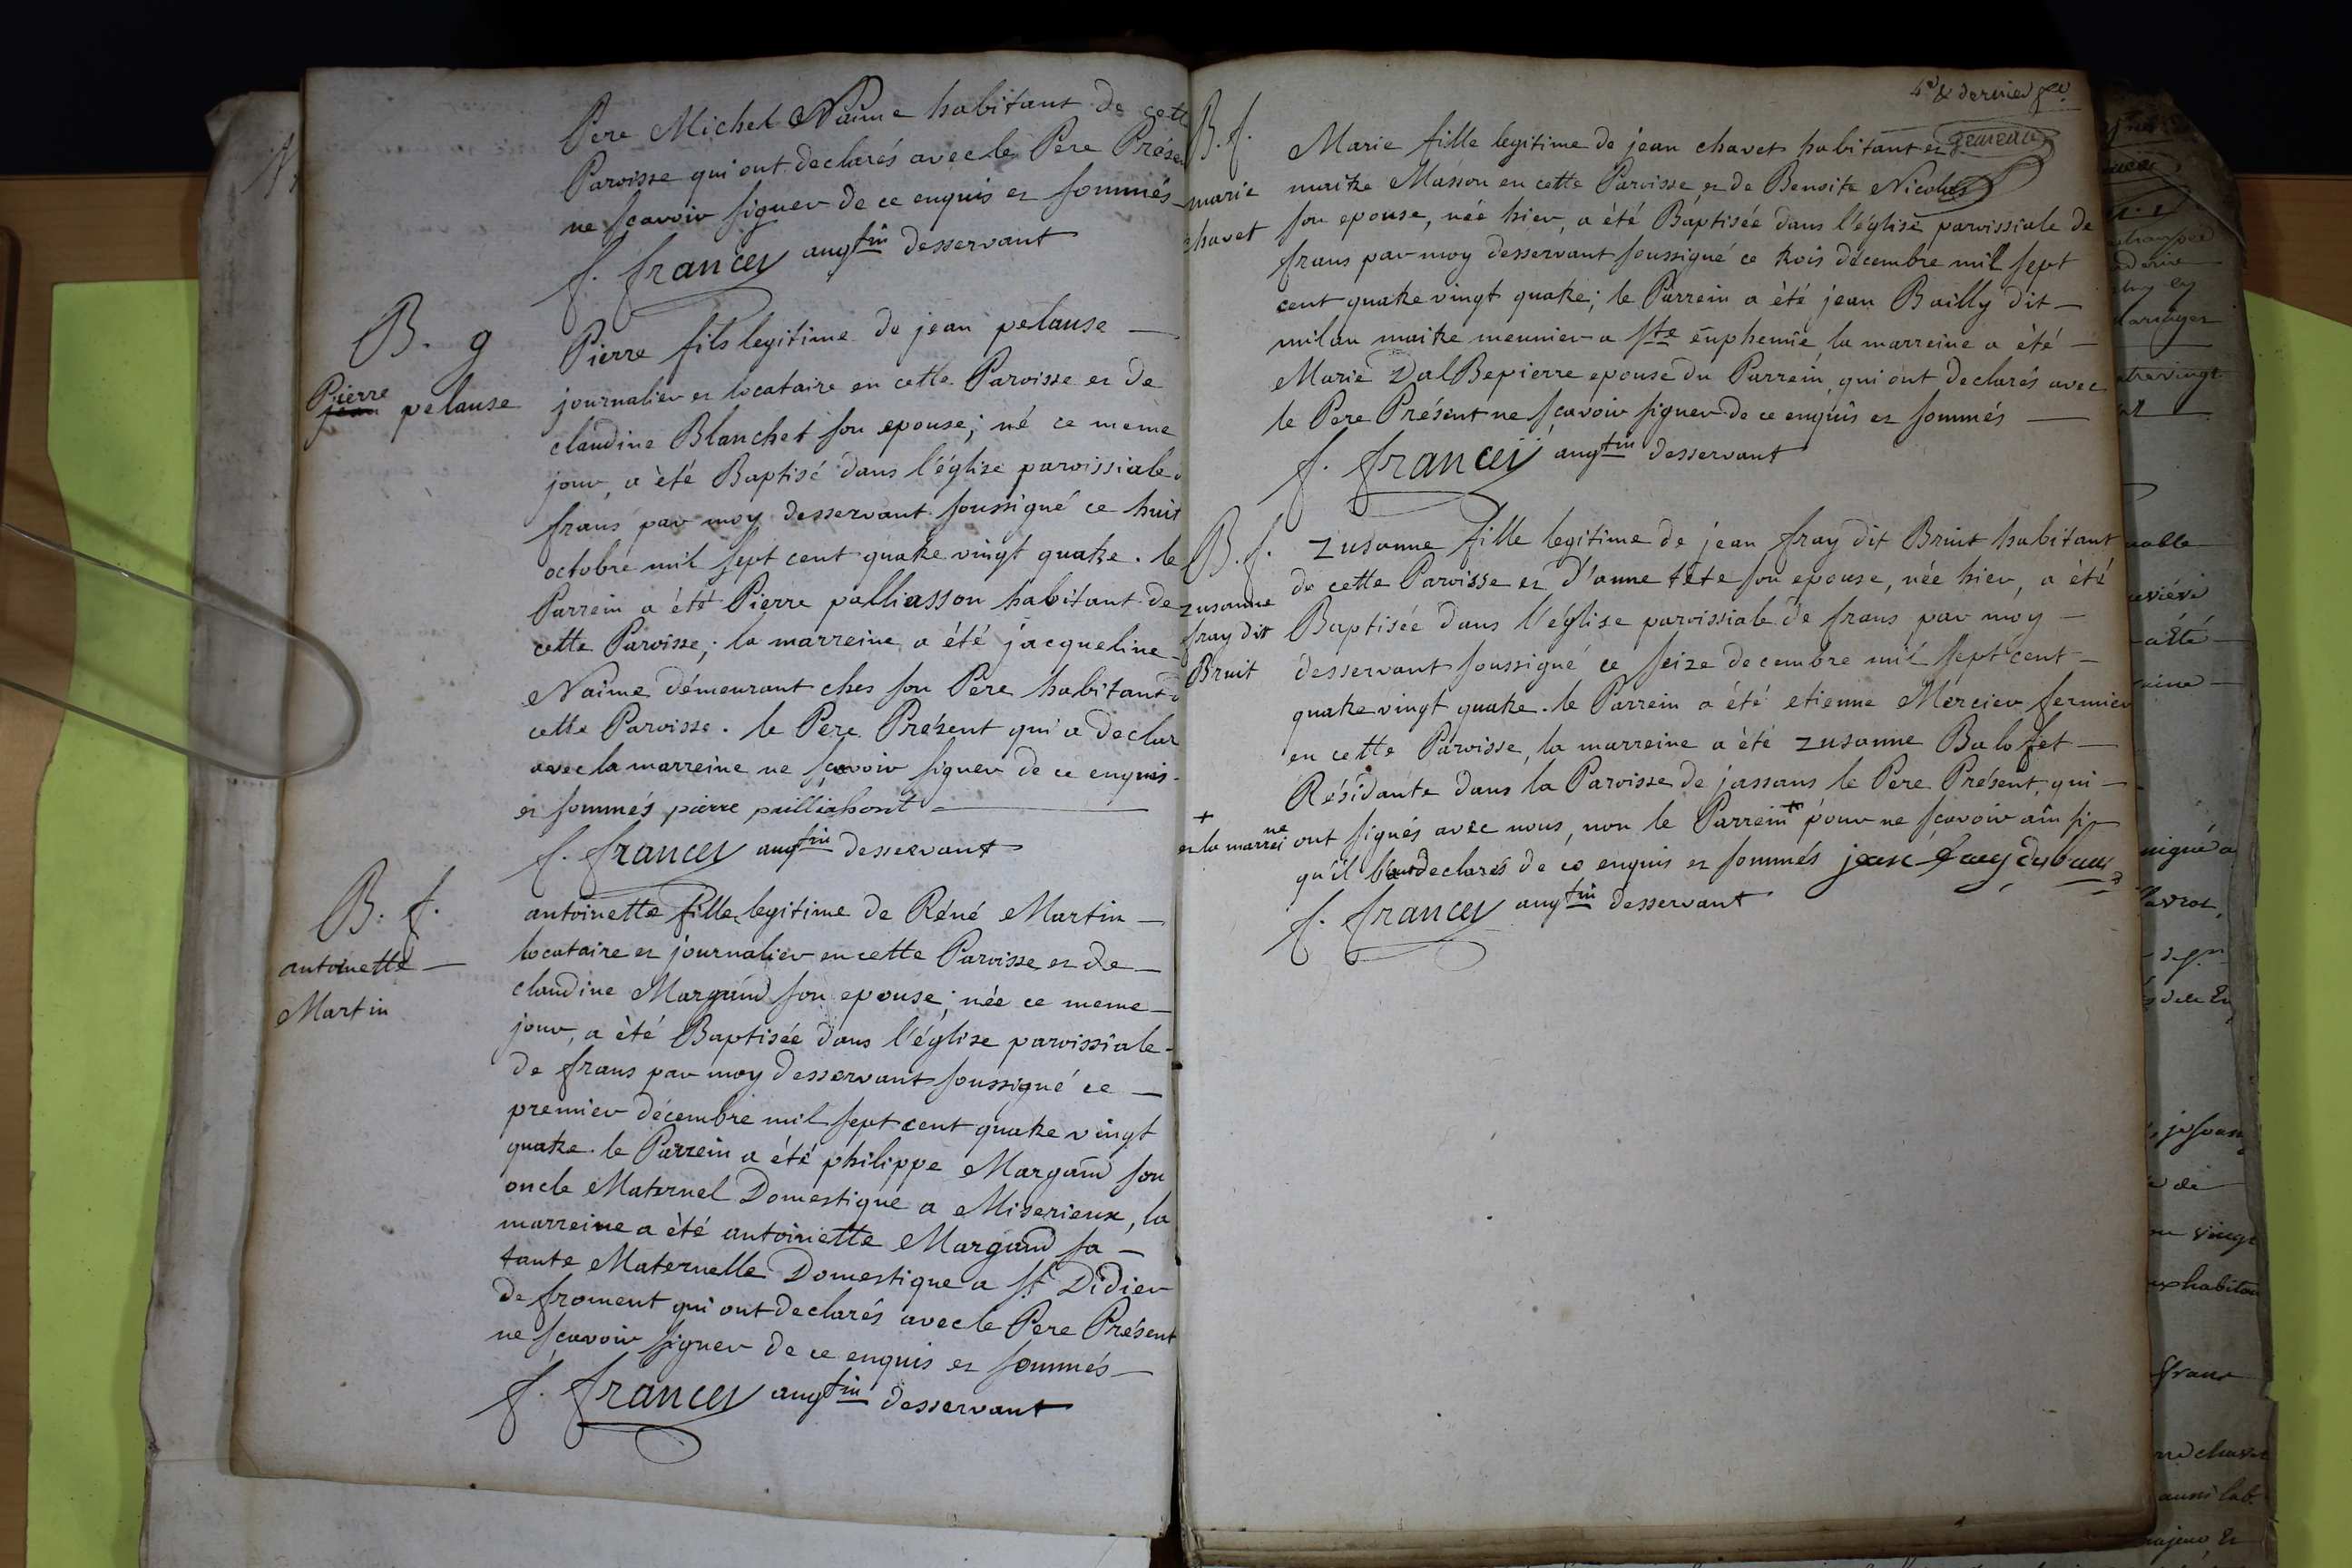 Pere Michel Naime habitant de cette
Paroisse qui ont declarés avec le Pere Présen
ne sçavoir signer de ce enquis et sommés
f. francey aug^tin desservant
B. g
Pierre
jean pelause
Pierre fils legitime de jean pelause —
journalier et locataire en cette Paroisse et de
claudine Blanchet son epouse; né ce meme
jour, a èté Baptisé dans l'église paroissiale
frans par moy desservant soussigné ce huit
octobre mil sept cent quatre vingt quatre. le
Parrein a èté Pierre palliasson habitant de
cette Paroisse; la marreine a été jacqueline
Naime démeurant ches son Pere habitant
cette Paroisse. le Pere Présent qui a declar
avec la marreine ne sçavoir signer de ce enquis
et sommés pierre
f. francey aug^tin desservant
B. f.
antoinette —
Martin
antoinette fille legitime de Réné Martin —
locataire et journalier en cette Paroisse et de —
claudine Margand son epouse; née ce meme —
jour, a èté Baptisée dans l'église paroissiale
de frans par moy desservant soussigné ce —
premier décembre mil sept cent quatre vingt
quatre. le Parrein a été philippe Margand son
oncle Maternel Domestique a Miserieux, la
marreine a èté antoinette Margand sa —
tante Maternelle Domestique a St Didier
de froment qui ont declarés avec le Pere Présent
ne sçavoir signer de ce enquis et sommés —
f. francey aug^tin desservant
4e & dernier
B. f.
marie
chavet
Marie fille legitime de jean chavet habitant et
maitre Masson en cette Paroisse et de Benoite Nicolas
son epouse, née hier, a èté Baptisée dans l'église paroissiale de
frans par moy desservant soussigné ce trois décembre mil sept
cent quatre vingt quatre; le Parrein a èté jean Bailly dit —
milan maitre meunier a Ste euphemie, la marreine a èté —
Marie DalBepierre epouse du Parrein, qui ont declarés avec
le Pere Présent ne sçavoir signer de ce enquis et sommés —
f. francey aug^tin desservant
B. f.
zusanne
fray dit
Bruit
zusanne fille legitime de jean fray dit Bruit habitant
de cette Paroisse et d'anne tête son epouse, née hier, a èté
Baptisée dans l'église paroissiale de frans par moy —
desservant soussigné ce seize decembre mil sept cent —
quatre vingt quatre. le Parrein a èté etienne Mercier fermier
en cette Paroisse, la marreine a èté zusanne Balofet —
Résidante dans la Paroisse de jassans le Pere Présent, qui —
ont signés avec nous, non le Parrein + pour ne sçavoir ainsi
+
et la marreine
qu'il l'ont declarés de ce enquis et sommés jean
f. francey aug^tin desservant